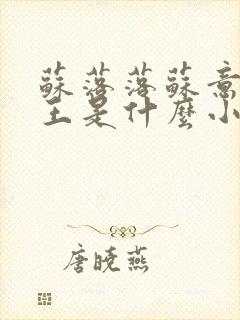 蘇落落蘇意
主是什麼小
唐曉燕